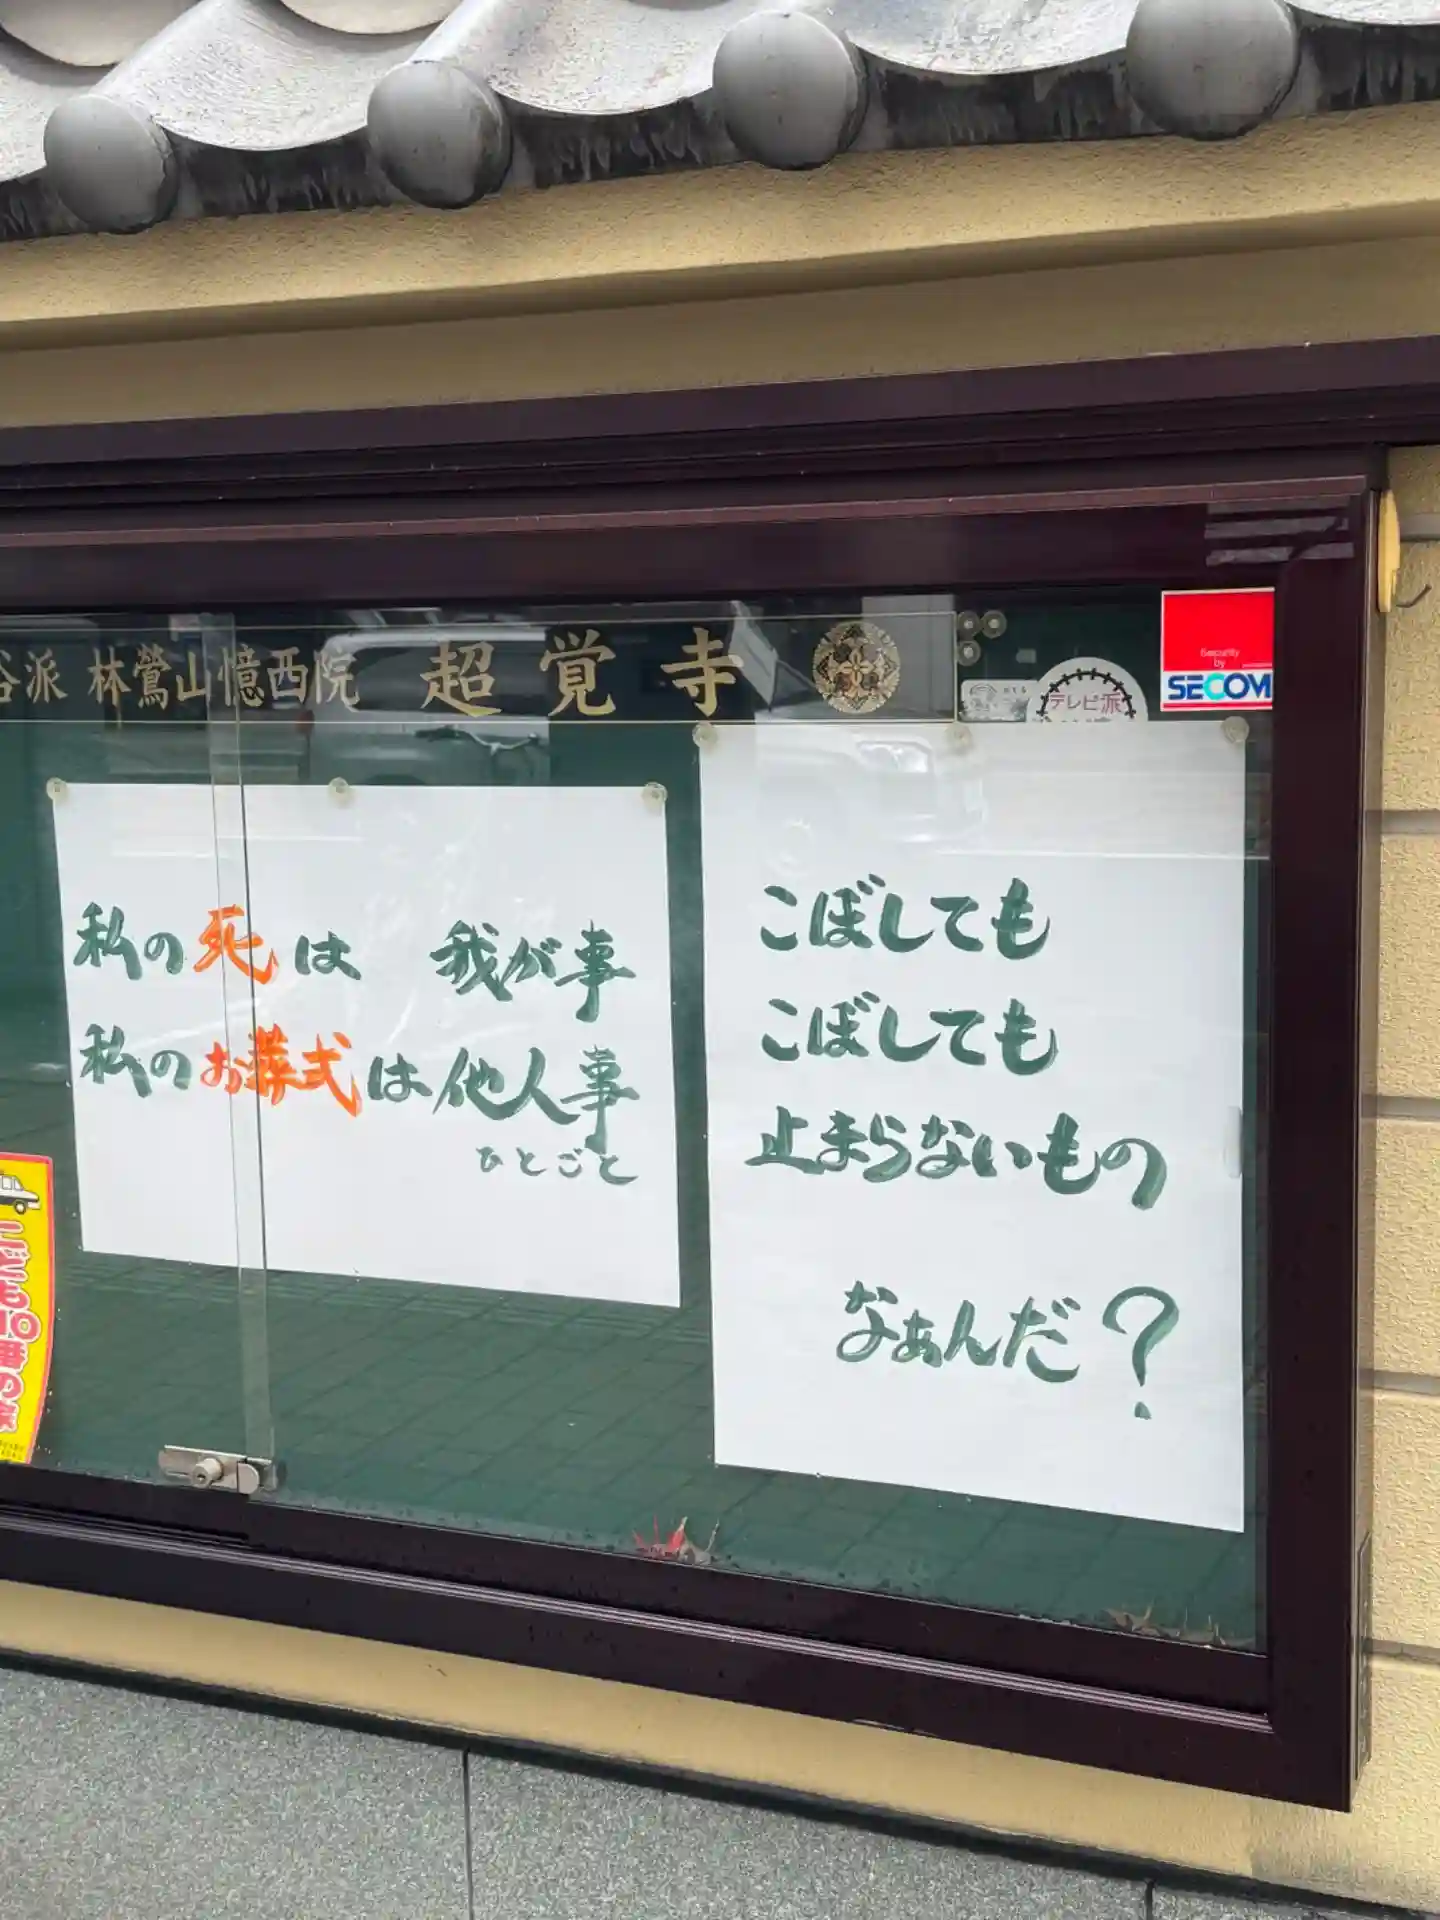 谷派 林鶯山憶西院 超覚寺
Security
by
SECOM
テレビ派
こぼしても
こぼしても
止まらないもの
なぁんだ?
私の死は 我が事
私のお葬式は他人事
ひとごと
こども110番の家